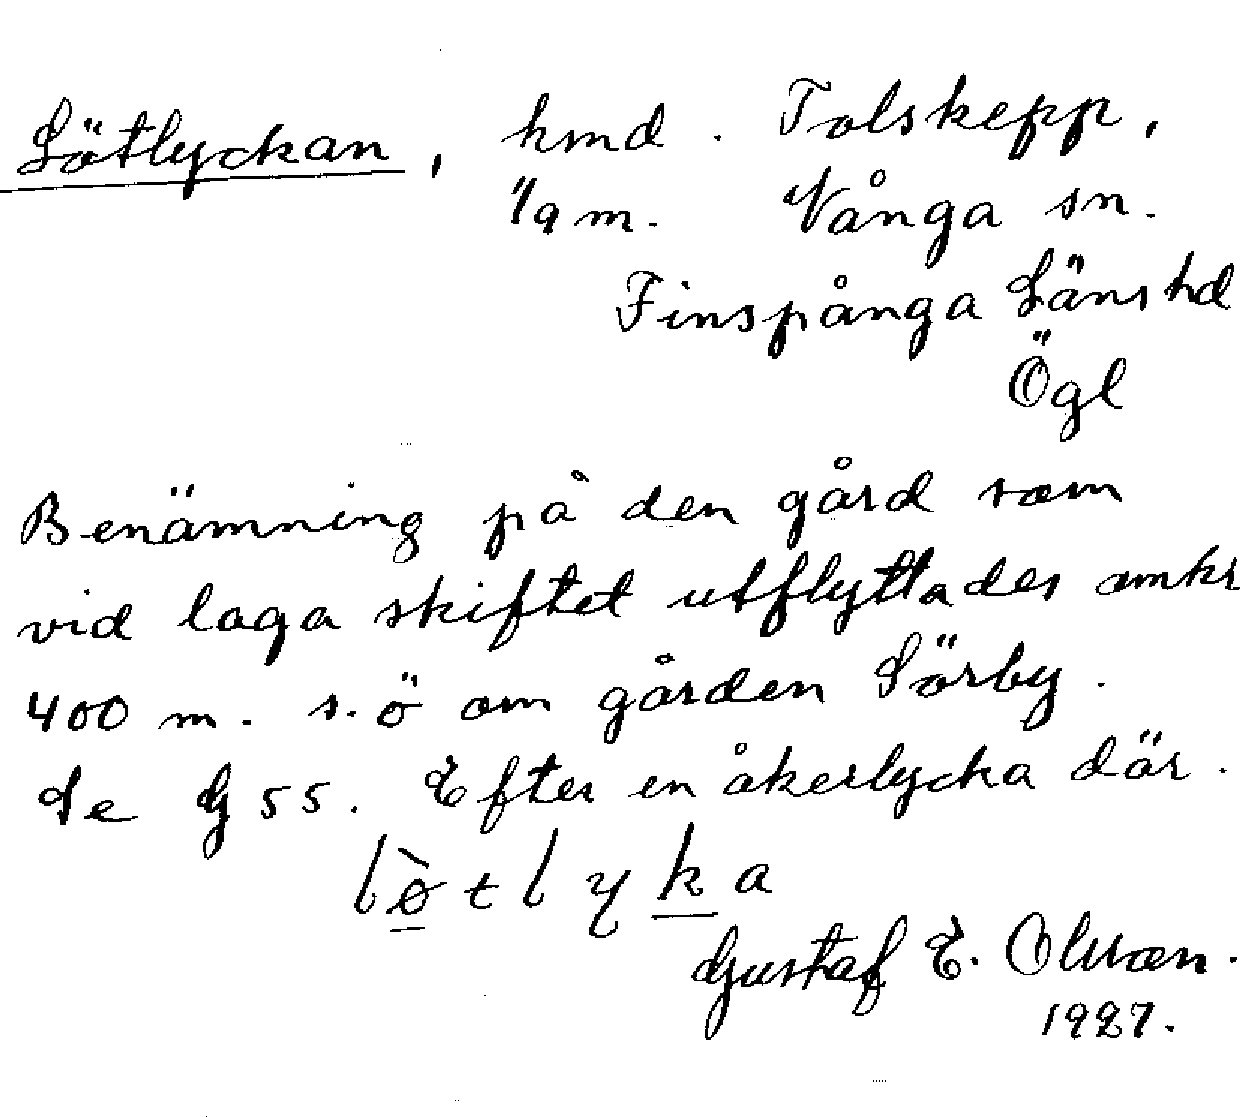 Lötlyckan, hmd. Tolskepp,
1/9 m. Vånga sn.
Finspånga Länshd
Ögl
Benämning på den gård som
vid laga skiftet utflyttades omkr
400 m. s.ö om gården Sörby.
Se G 55. Efter en åkerlycka där.
lø̀tlyka
Gustaf E. Olsson.
1927.